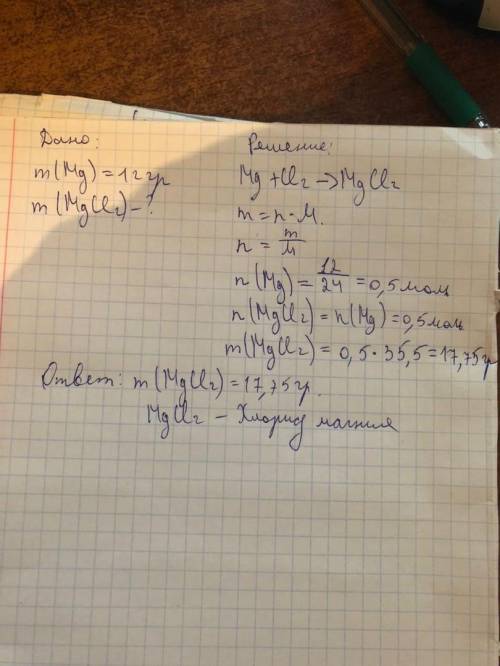 Дано:
m(Mg) = 12 гр
m(MgCl₂) - ?
Решение:
Mg + Cl₂ → MgCl₂
m = n · M.
n = m/M
n(Mg) = 12/24 = 0,5 моль
n(MgCl₂) = n(Mg) = 0,5 моль
m(MgCl₂) = 0,5 · 35,5 = 17,75 гр
Ответ: m(MgCl₂) = 17,75 гр.
MgCl₂ - Хлорид магния